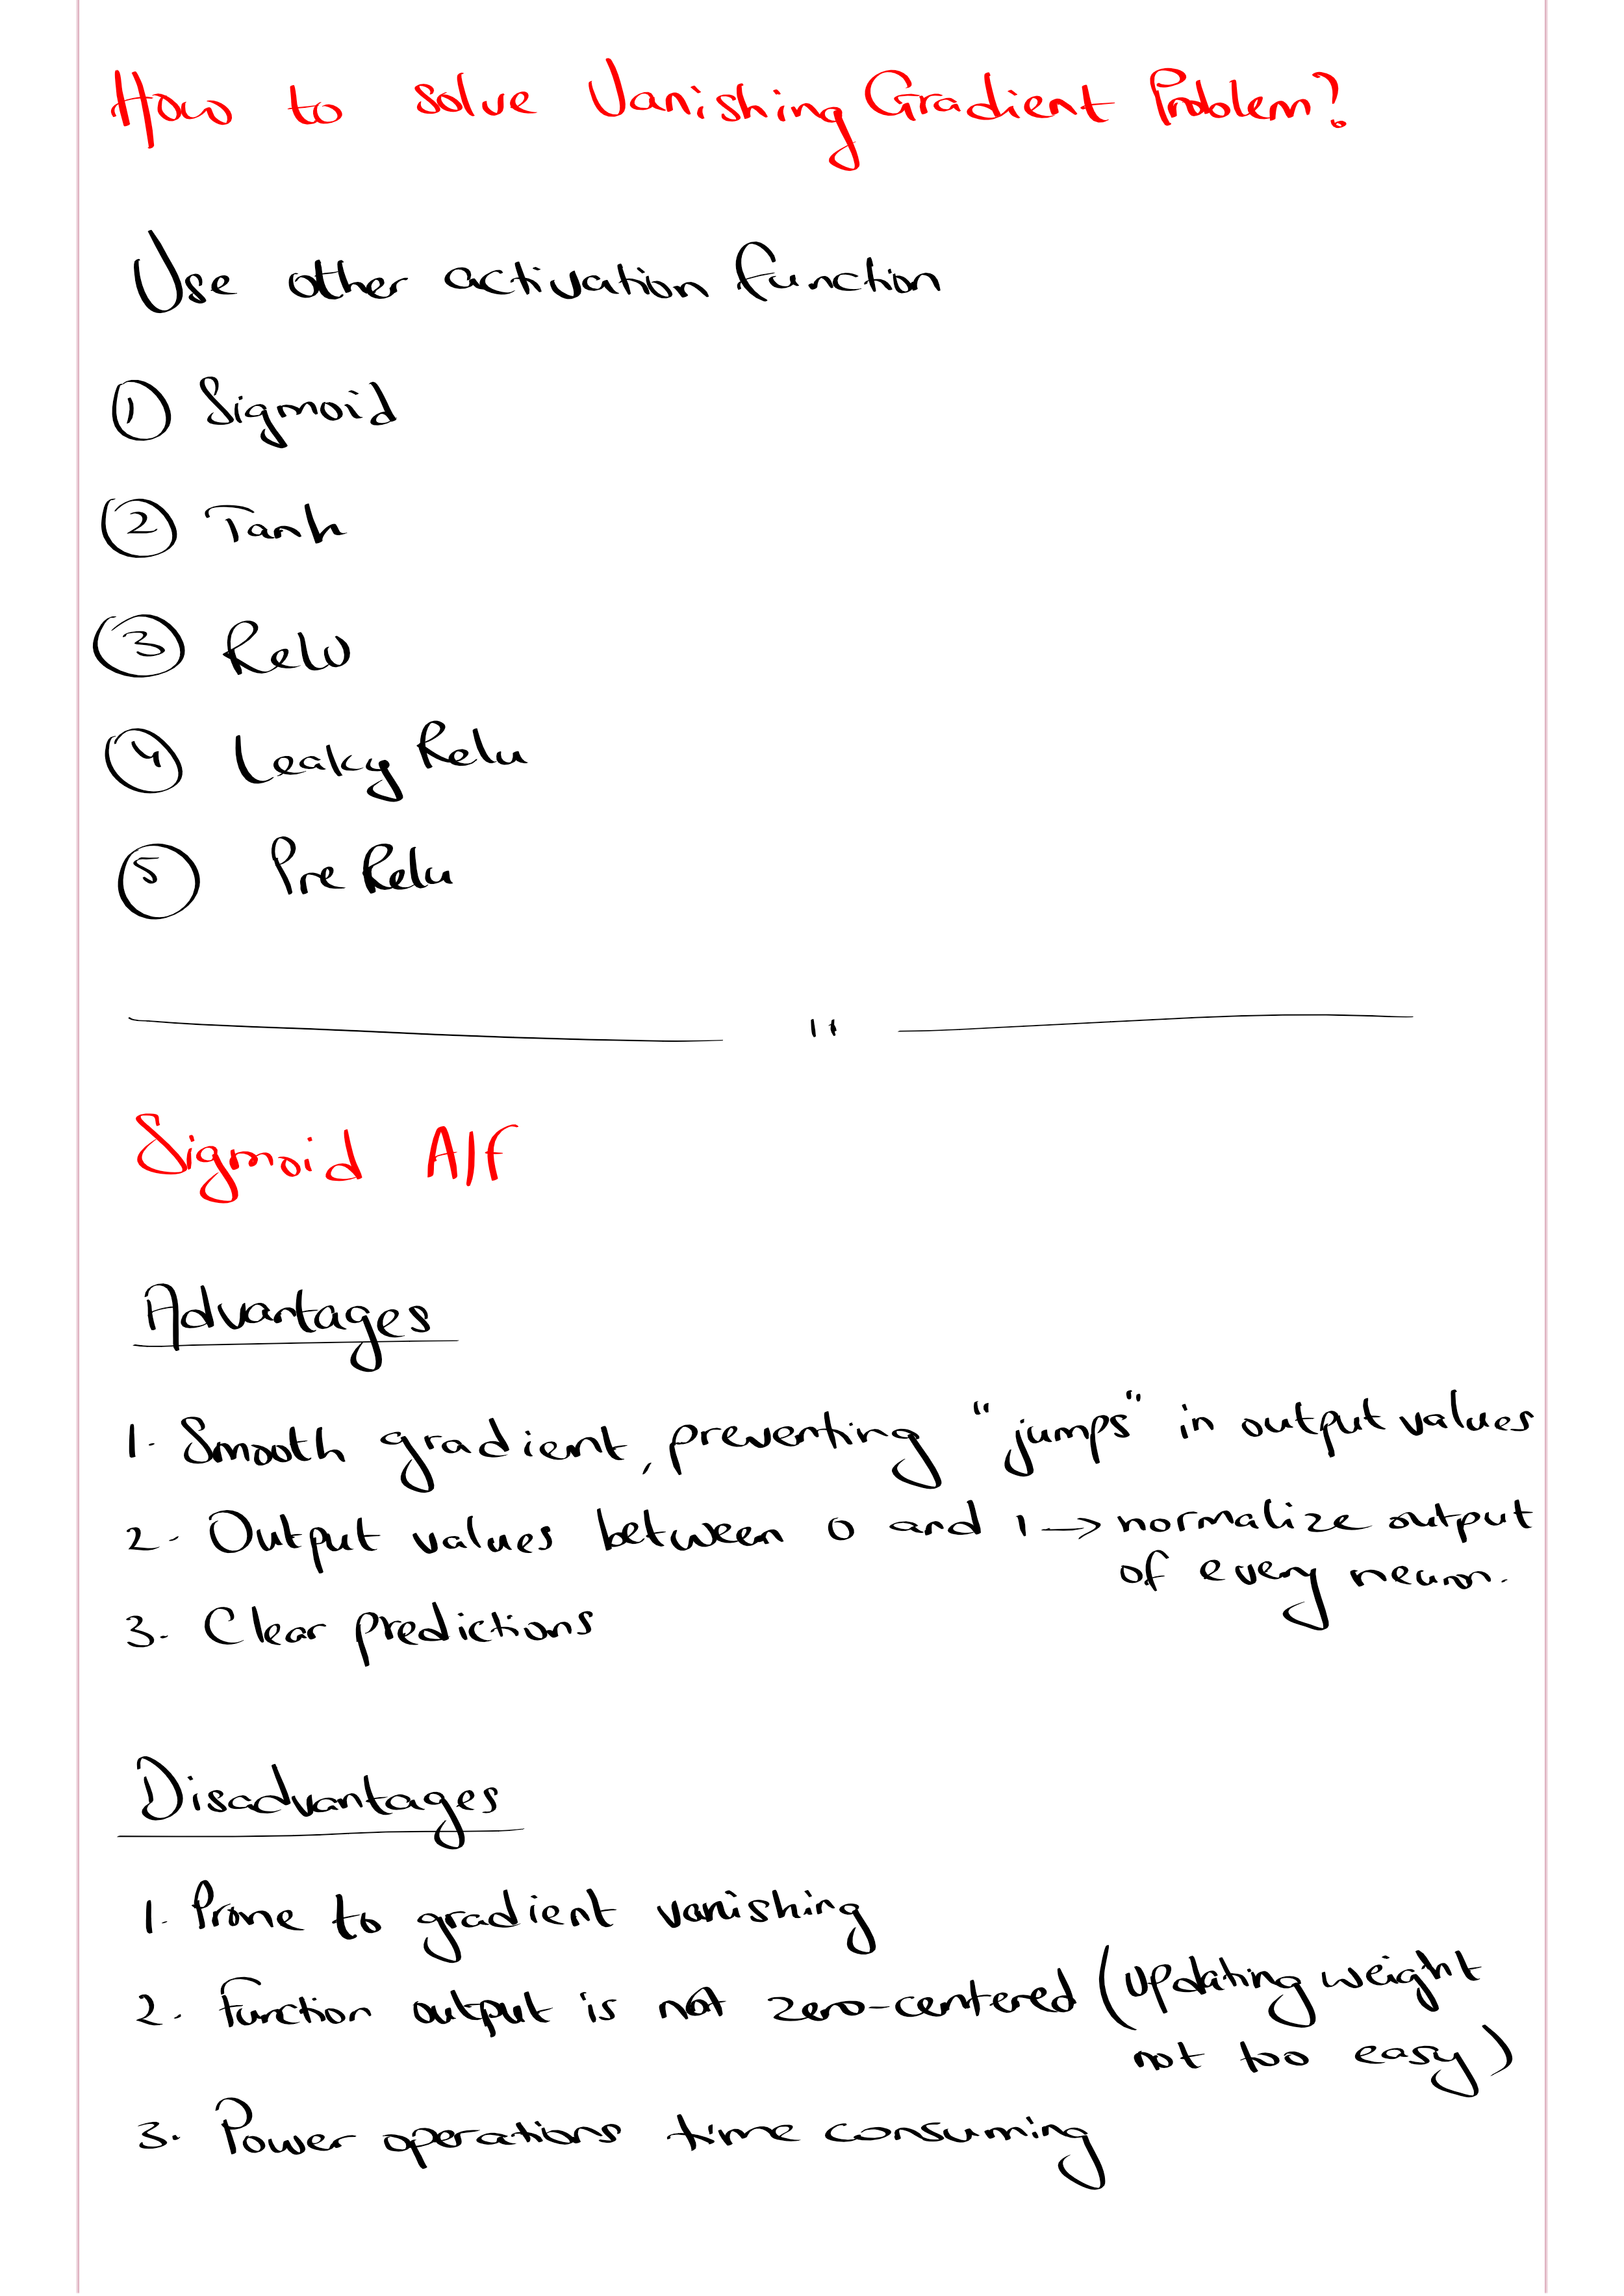 How to solve Vanishing Gradient Problem?
Use other activation function
① Sigmoid
② Tanh
③ Relu
④ Leaky Relu
⑤ Pre Relu
"
Sigmoid A/f
Advantages
1. Smooth gradient, preventing "jumps" in output values
2. Output values between 0 and 1 → normalize output
of every neuron.
3. Clear predictions
Disadvantages
1. Prone to gradient vanishing
2. Function output is not zero-centered (Updating weight
not too easy)
3. Power operations time consuming